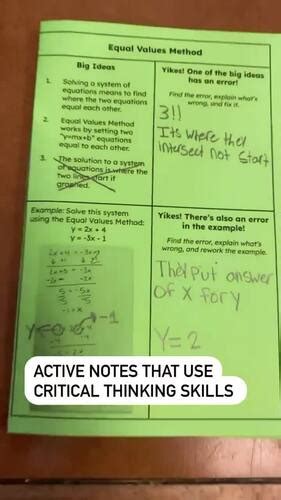 Equal Values Method
Big Ideas
1. Solving a system of
equations means to find
where the two equations
equal each other.
2. Equal Values Method
works by setting two
"y=mx+b" equations
equal to each other.
3. The solution to a system
of equations is where the
two lines start if
graphed.
Yikes! One of the big ideas
has an error!
Find the error, explain what's
wrong, and fix it.
3!!
Its where they
intersect not start
Example: Solve this system
using the Equal Values Method:
y = 2x + 4
y = -3x - 1
2x+4 = -3x-1
+1 +1
2x+5 = -3x
-2x -2x
5 = -5x
-1=x
Yikes! There's also an error
in the example!
Find the error, explain what's
wrong, and rework the example.
They put answer
of X for y
Y=2
ACTIVE NOTES THAT USE
CRITICAL THINKING SKILLS